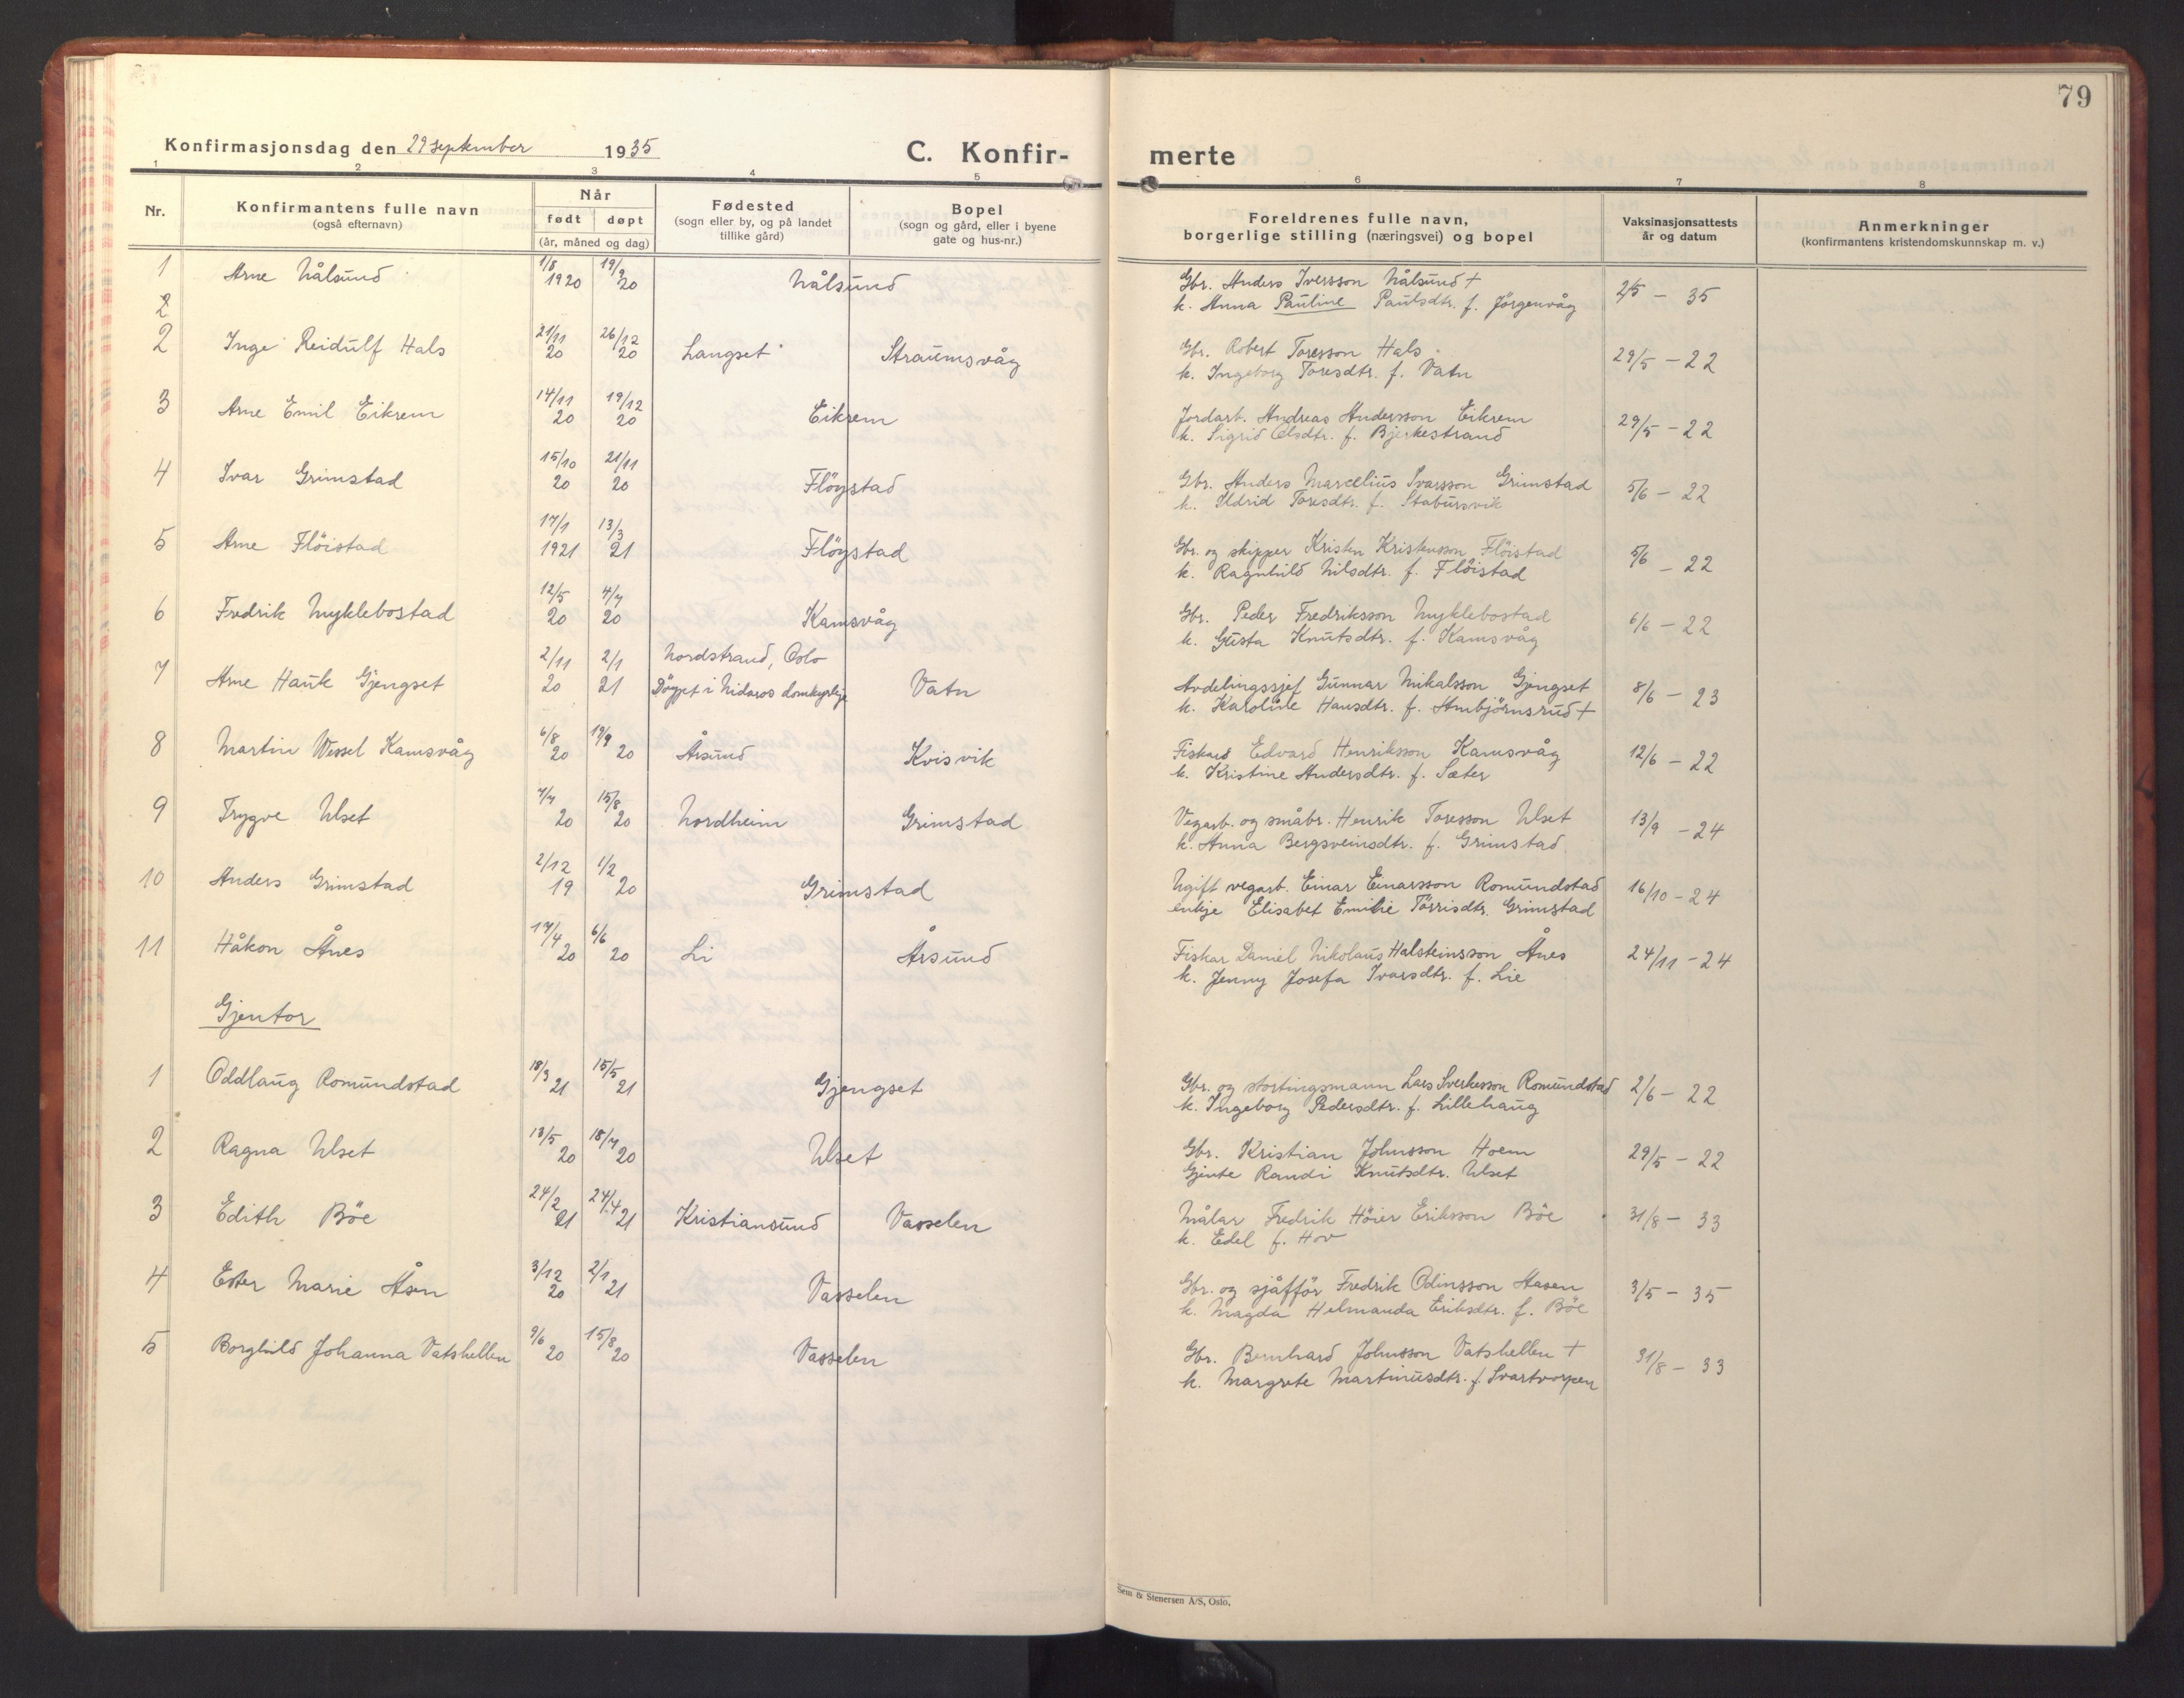 79
Konfirmasjonsdag den 29 september 1935
C. Konfir-
merte
1 2 3 4 5 6 7 8
Nr.
Konfirmantens fulle navn
(også efternavn)
Når
født døpt
(år, måned og dag)
Fødested
(sogn eller by, og på landet
tillike gård)
Bopel
(sogn og gård, eller i byene
gate og hus-nr.)
Foreldrenes fulle navn,
borgerlige stilling (næringsvei) og bopel
Vaksinasjonsattests
år og datum
Anmerkninger
(konfirmantens kristendomskunnskap m. v.)
1 Arne Nålsund 1/8 1920 19/9 20 Nålsund Gbr. Anders Iversson Nålsund + 2/5 - 35
k. Anna Pauline Paulsdtr. f. Jörgenvåg
2
2 Inge Reidulf Hals 21/11 20 26/12 20 Langset Straumsvåg Gbr. Robert Toresson Hals 29/5 - 22
k. Ingeborg Toresdtr. f. Vatn
3 Arne Emil Eikrem 14/11 20 19/12 20 Eikrem Jordarb. Andreas Andersson Eikrem 29/5 - 22
k. Sigrid Olsdtr. f. Bjerkestrand
4 Ivar Grimstad 15/10 20 21/11 20 Flöystad Gbr. Anders Marcelius Ivarsson Grimstad 5/6 - 22
k. Ildrid Toresdtr. f. Stabursvik
5 Arne Flöistad 17/1 1921 13/3 21 Flöystad Gbr. og skipper Kristen Kristensson Flöistad 5/6 - 22
k. Ragnhild Nilsdtr. f. Flöistad
6 Fredrik Nyklebostad 12/5 20 4/7 20 Kamsvåg Gbr. Peder Fredriksson Nyklebostad 6/6 - 22
k. Gusta Knutsdtr. f. Kamsvåg
7 Arne Hauk Gjengset 2/11 20 2/1 21 Nordstrand, Oslo
Döypt i Nidaros domkyrkje Vatn Avdelingssjef Gunnar Nikalsson Gjengset 8/6 - 23
k. Karoline Hansdtr. f. Ambjörnsrud +
8 Martin Wessel Kamsvåg 6/8 20 19/9 20 Årsund Kvisvik Fiskar Edvard Henriksson Kamsvåg 12/6 - 22
k. Kristine Andersdtr. f. Sæter
9 Trygve Ulset 7/7 20 15/8 20 Nordheim Grimstad Vegarb. og småbr. Henrik Toresson Ulset 13/9 - 24
k. Anna Bergsveinsdtr. f. Grimstad
10 Anders Grimstad 2/12 19 1/2 20 Grimstad Ugift vegarb. Einar Einarsson Romundstad 16/10 - 24
enkje Elisabet Emilie Torrisdtr. Grimstad
11 Håkon Ånes 17/4 20 6/6 20 Li Årsund Fiskar Daniel Nikolaus Halsteinsson Ånes 24/11 - 24
k. Jenny Josefa Ivarsdtr. f. Lie
Gjentor
1 Oddlaug Romundstad 18/3 21 15/5 21 Gjengset Gbr. og stortingsmann Lars Sverkesson Romundstad 2/6 - 22
k. Ingeborg Pedersdtr. f. Lillehaug
2 Ragna Ulset 13/5 20 18/7 20 Ulset Gbr. Kristian Johnsson Hoem 29/5 - 22
Gjente Randi Knutsdtr. Ulset
3 Edith Böe 24/2 21 24/4 21 Kristiansund Vasselen Målar Fredrik Höier Eriksson Böe 31/8 - 33
k. Edel f. Hov
4 Ester Marie Åsen 3/12 20 2/1 21 Vasselen Gbr. og sjåfför Fredrik Odinsson Aasen 3/5 - 35
k. Magda Helmanda Eriksdtr. f. Böe
5 Borghild Johanna Vatshellen 9/6 20 15/8 20 Vasselen Gbr. Bernhard Johnsson Vatshellen + 31/8 - 33
k. Margrete Martinusdtr. f. Svartvorpen
Sem & Stenersen A/S, Oslo.